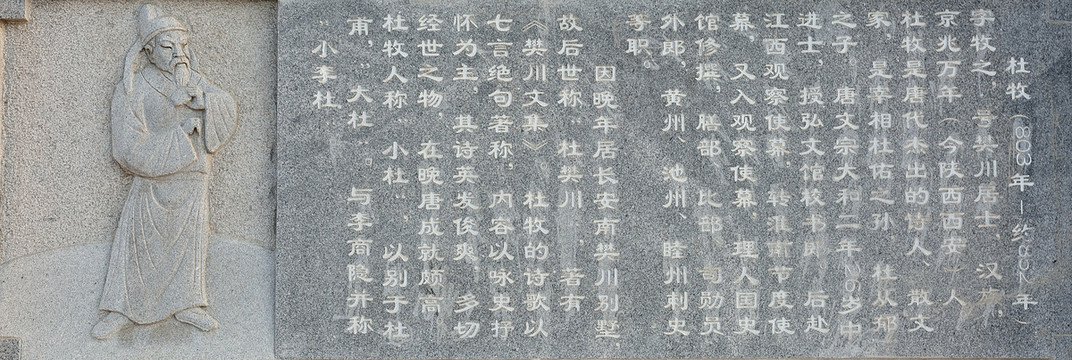 杜牧(803年－约852年)
字牧之，号樊川居士，汉族，
京兆万年(今陕西西安)人
杜牧是唐代杰出的诗人、散文
家，是宰相杜佑之孙，杜从郁
之子，唐文宗大和二年26岁中
进士，授弘文馆校书郎。后赴
江西观察使幕，转淮南节度使
幕，又入观察使幕，理人国史
馆修撰，膳部、比部、司勋员
外郎，黄州、池州、睦州刺史
等职。
因晚年居长安南樊川别墅，
故后世称“杜樊川”，著有
《樊川文集》。杜牧的诗歌以
七言绝句著称，内容以咏史抒
怀为主，其诗英发俊爽，多切
经世之物，在晚唐成就颇高。
杜牧人称“小杜”，以别于杜
甫，“大杜”。与李商隐并称
“小李杜。